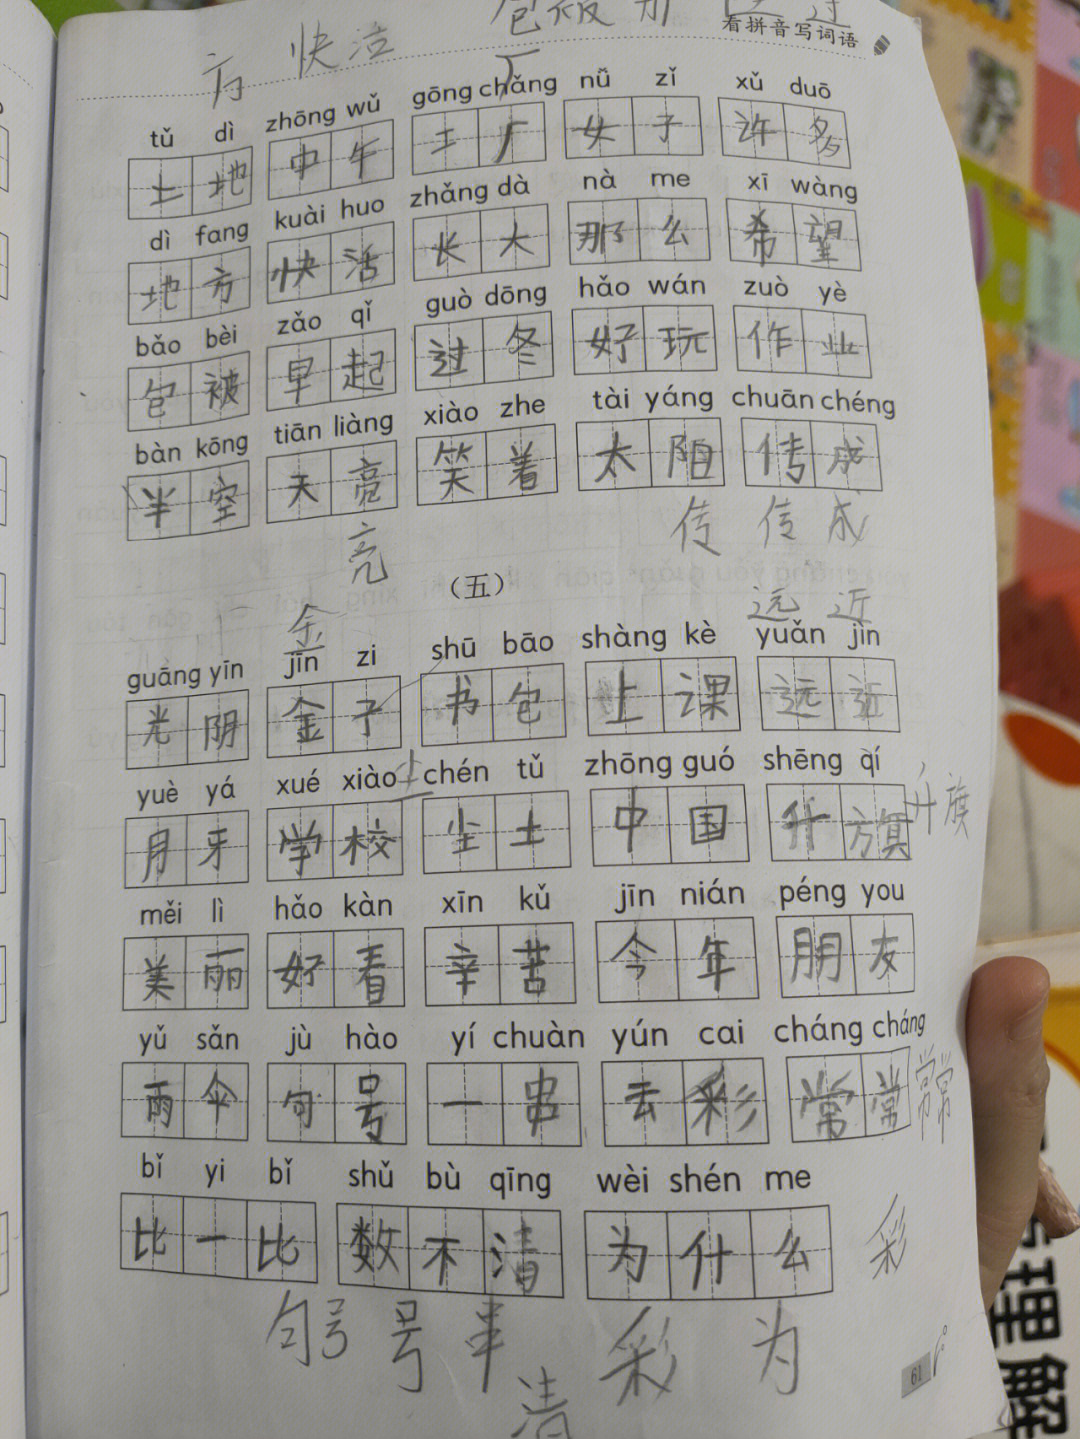 方 快 活
看拼音写词语
tǔ dì zhōng wǔ gōng chǎng nǚ zǐ xǔ duō
土地 中午 工厂 女子 许多
dì fang kuài huo zhǎng dà nà me xī wàng
地方 快活 长大 那么 希望
bǎo bèi zǎo qǐ guò dōng hǎo wán zuò yè
包被 早起 过冬 好玩 作业
bàn kōng tiān liàng xiào zhe tài yáng chuān chéng
半空 天亮 笑着 太阳 传成
亮 传 传 成
（五）
金 远 近
guāng yīn jīn zi shū bāo shàng kè yuǎn jìn
光阴 金子 书包 上课 远近
yuè yá xué xiào chén tǔ zhōng guó shēng qí
月牙 学校 尘土 中国 升旗
尘 升旗
měi lì hǎo kàn xīn kǔ jīn nián péng you
美丽 好看 辛苦 今年 朋友
yǔ sǎn jù hào yí chuàn yún cai cháng cháng
雨伞 句号 一串 云彩 常常
常常
bǐ yi bǐ shǔ bù qīng wèi shén me
比一比 数不清 为什么
彩
句号 号 串 彩 为
清
61
理解